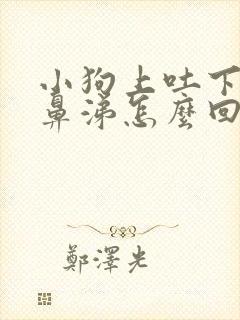 小狗上吐下
鼻涕怎麼回
鄭澤光